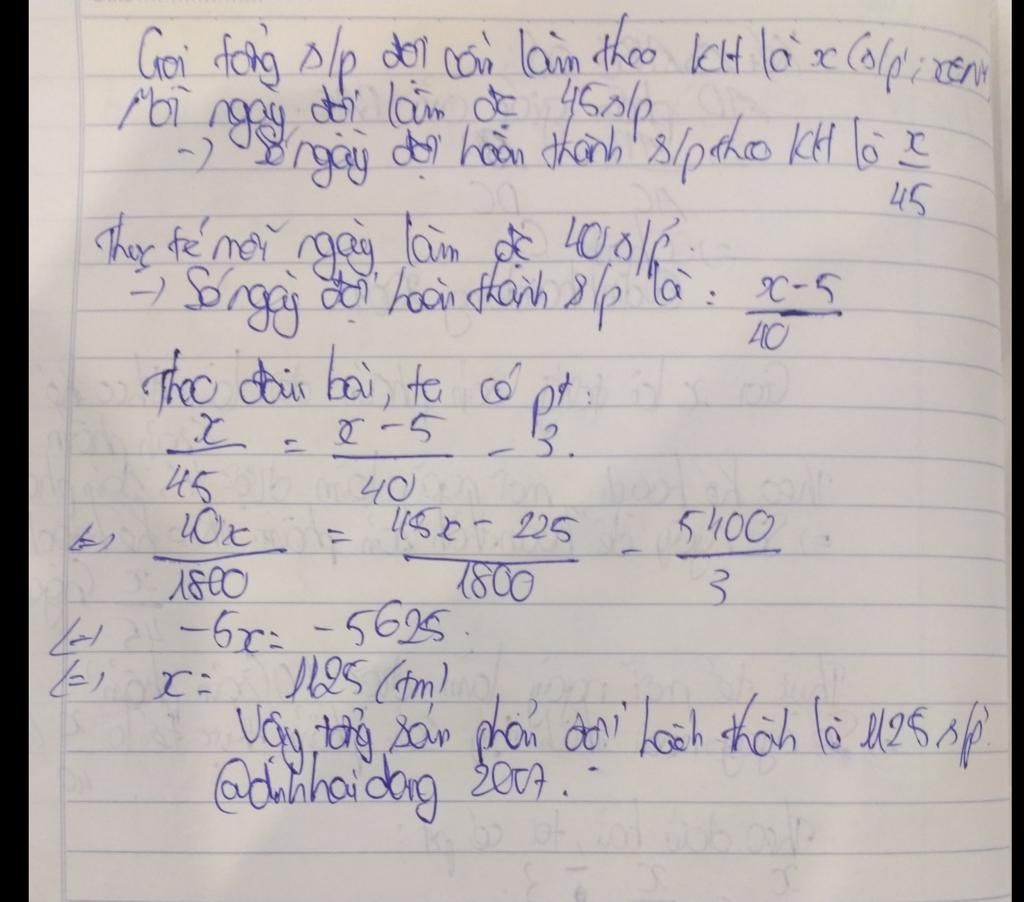 Gọi tổng s/p đội cần làm theo KH là x (s/p; x∈N*
Mỗi ngày đội làm đc 45 s/p
→ Số ngày đội hoàn thành s/p theo KH là x/45
Thực tế mỗi ngày làm đc 40 s/p.
→ Số ngày đội hoàn thành s/p là: x-5/40
Theo đầu bài, ta có pt:
x/45 = x-5/40 - 3.
<=> 40x/1800 = 45x - 225/1800 - 5400/3
<=> -5x = -5625.
<=> x = 1125 (tm)
Vậy tổng sản phẩn đội hoành thành là 1125 s/p
@dinhhaidong 2007.